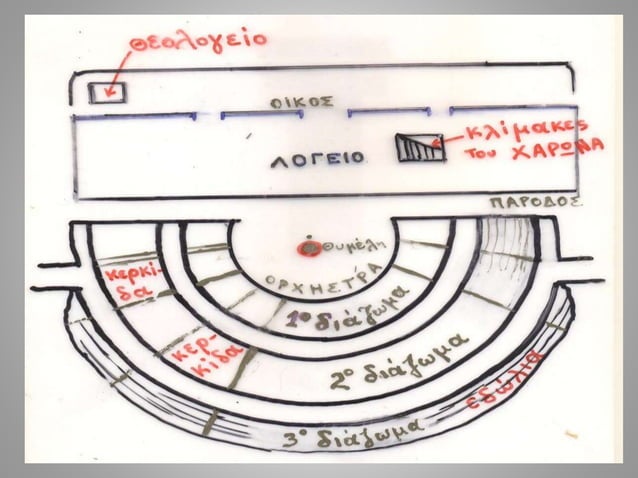 θεολογείο
ΟΙΚΟΣ
κλίμακες
του ΧΑΡΩΝΑ
ΛΟΓΕΙΟ
ΠΑΡΟΔΟΣ
θυμέλη
ΟΡΧΗΣΤΡΑ
κερκί-
δα
1º διάζωμα
κερ-
κίδα
2º διάζωμα
εδώλια
3º διάζωμα